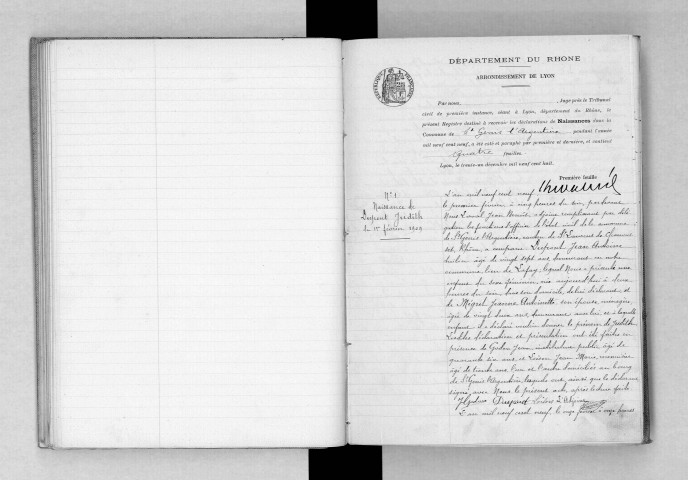 DÉPARTEMENT DU RHONE
ARRONDISSEMENT DE LYON
RÉPUBLIQUE FRANÇAISE
Par nous, Juge près le Tribunal
civil de première instance, séant à Lyon, département du Rhône, le
présent Registre destiné à recevoir les déclarations de Naissances dans la
Commune de St Genis l'Argentière pendant l'année
mil neuf cent neuf, a été coté et paraphé par première et dernière, et contient
Quatre feuilles
Lyon, le trente-un décembre mil neuf cent huit.
Première feuille
N° 1
Naissance de
Dupont Judith
du 1er février 1909
L'an mil neuf cent neuf
le premier février à cinq heures du soir, par devant
Nous Jean Benoît, adjoint remplissant par délé
gation les fonctions d'officier de l'état civil de la commune
de St Genis l'Argentière, canton de St Laurent de Chamous
set, Rhône, a comparu Dupont Jean Antoine
âgé de vingt sept ans demeurant en cette
commune, lieu de lequel Nous a présenté une
enfant du sexe féminin, née aujourd'hui à
heures du soir, dans son domicile, de lui déclarant et
de Mégret Jeanne Antoinette son épouse, ménagère,
âgée de vingt deux ans demeurant avec lui et à laquelle
enfant il a déclaré vouloir donner le prénom de Judith
Lesdites déclaration et présentation ont été faites en
présence de Jean instituteur public âgé de
quarante six ans et Jean Marie,
âgé de trente ans l'un et l'autre domiciliés au bourg
de St Genis l'Argentière, lesquels ont, ainsi que le déclarant
signé avec Nous le présent acte, après lecture faite
Dupont
L'an mil neuf cent neuf, le onze février à onze heures